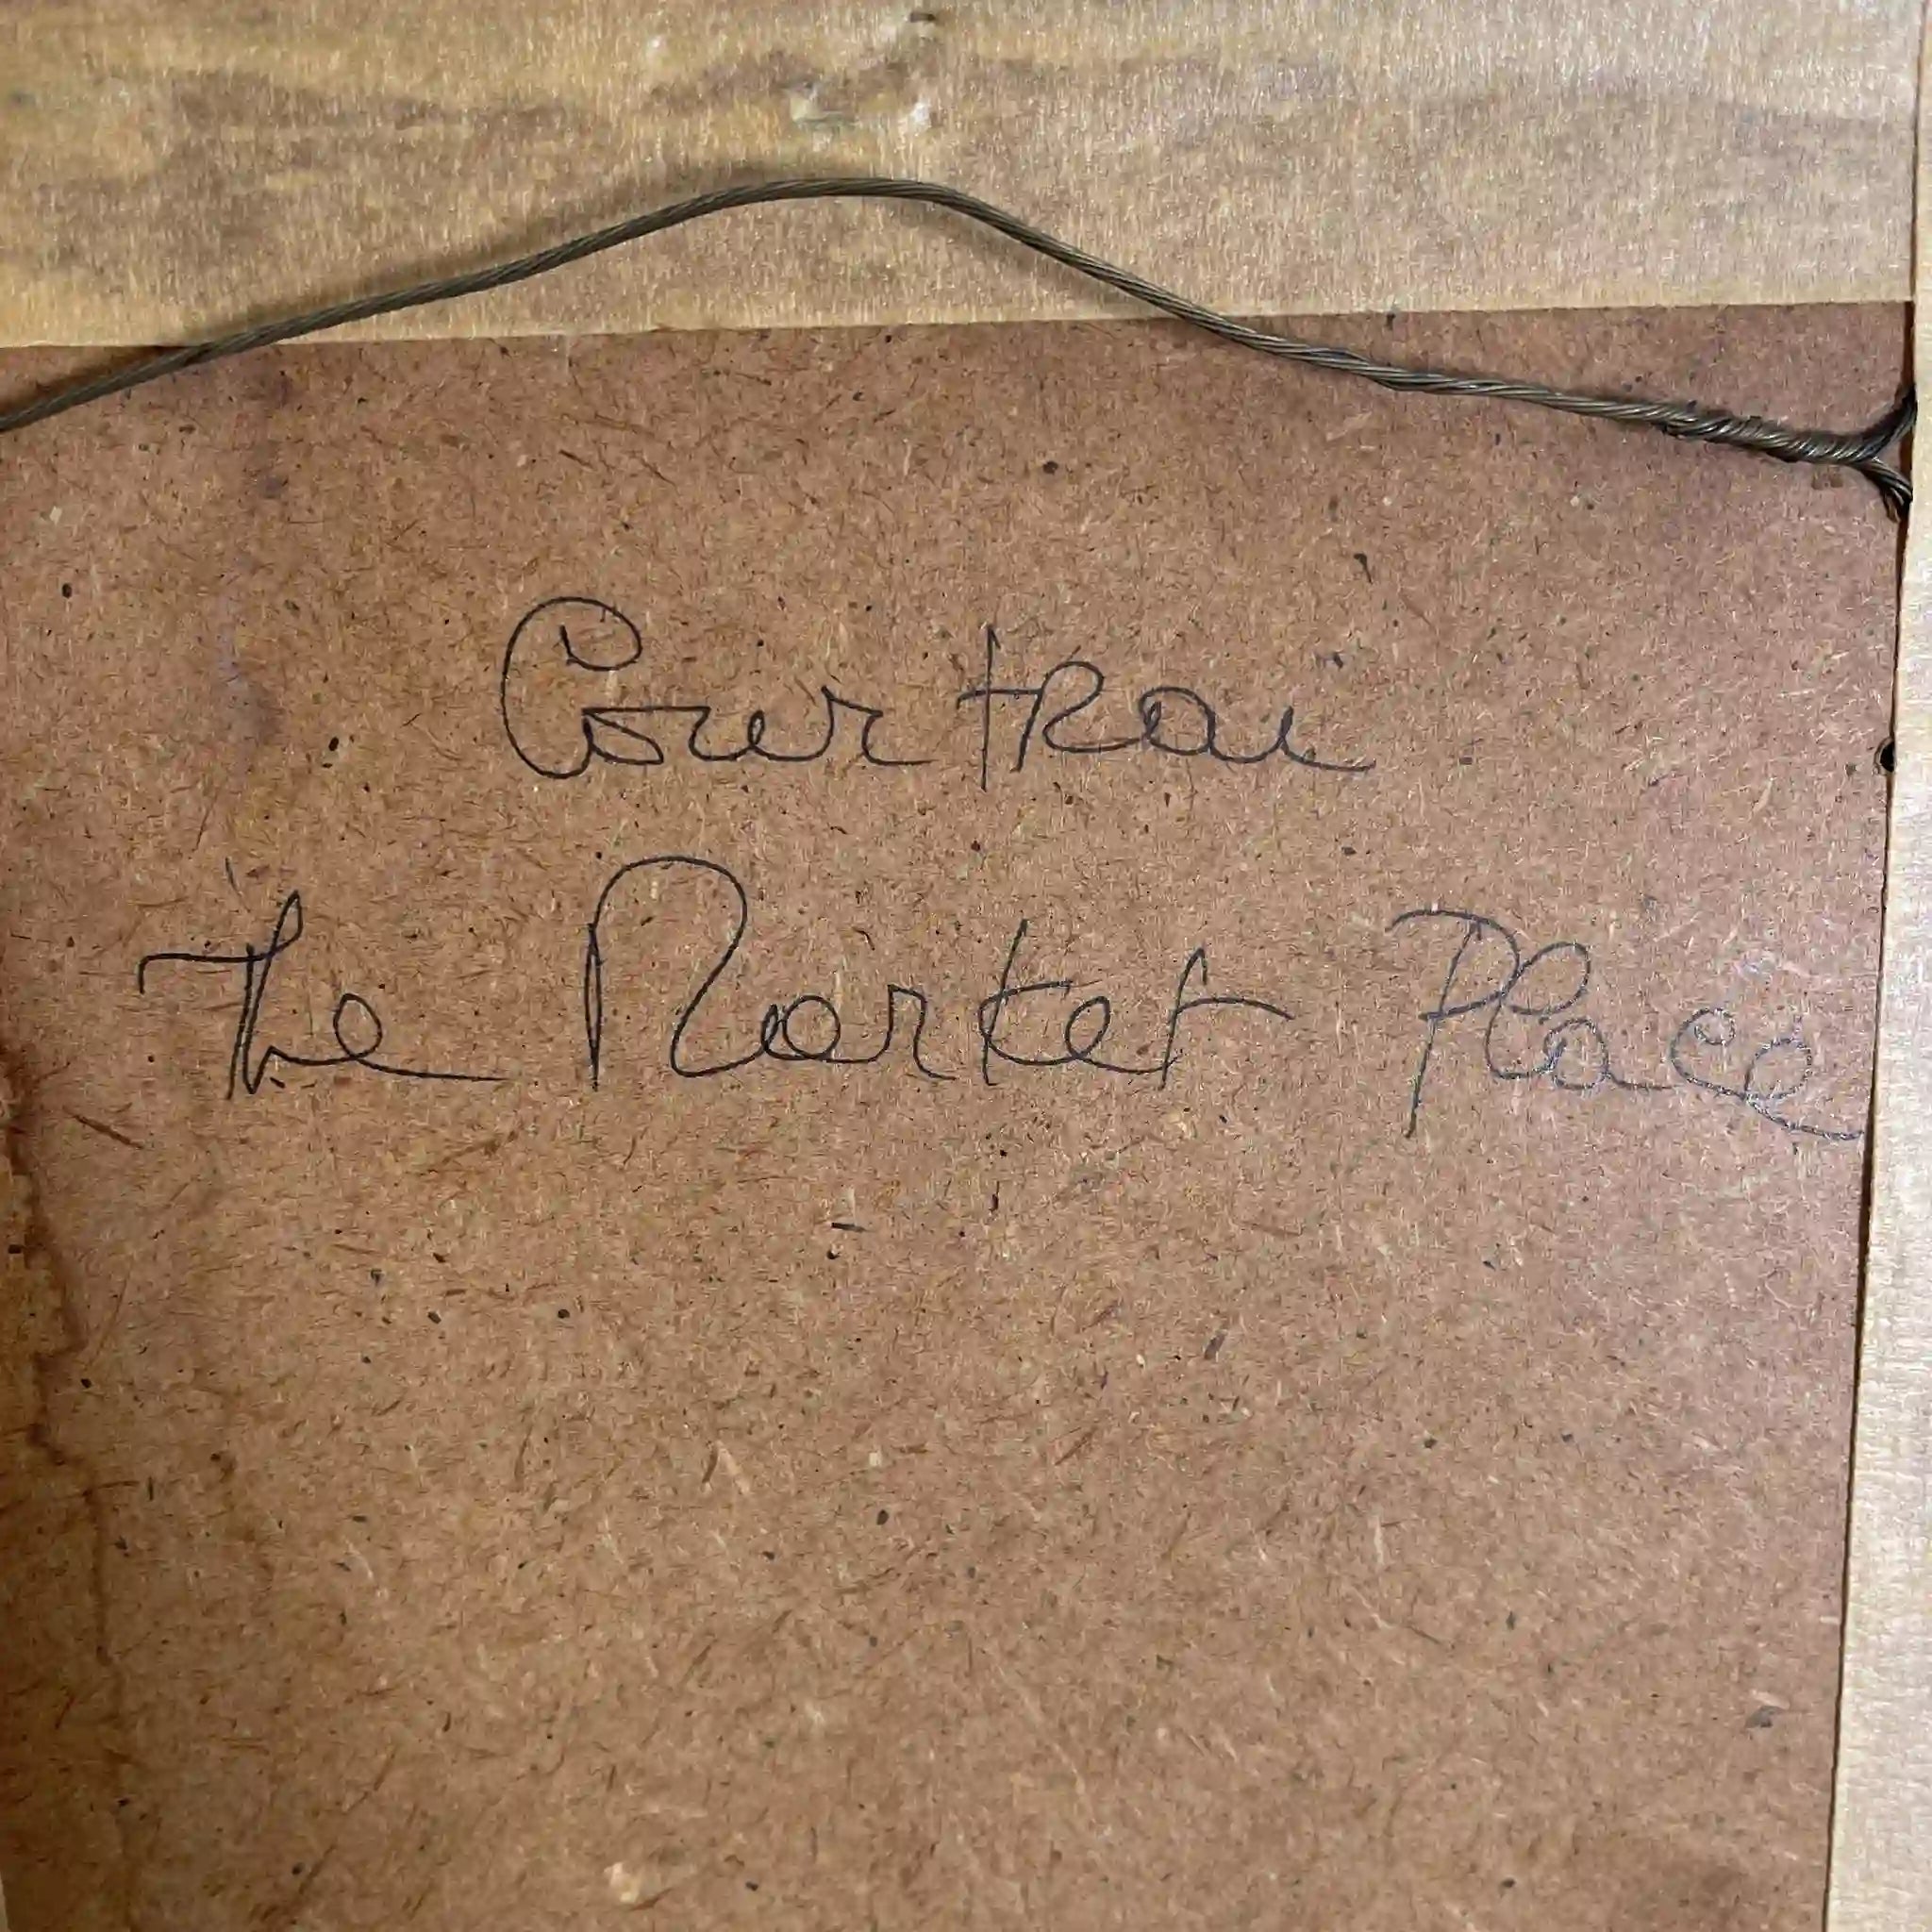 Courtrai
The Market Place